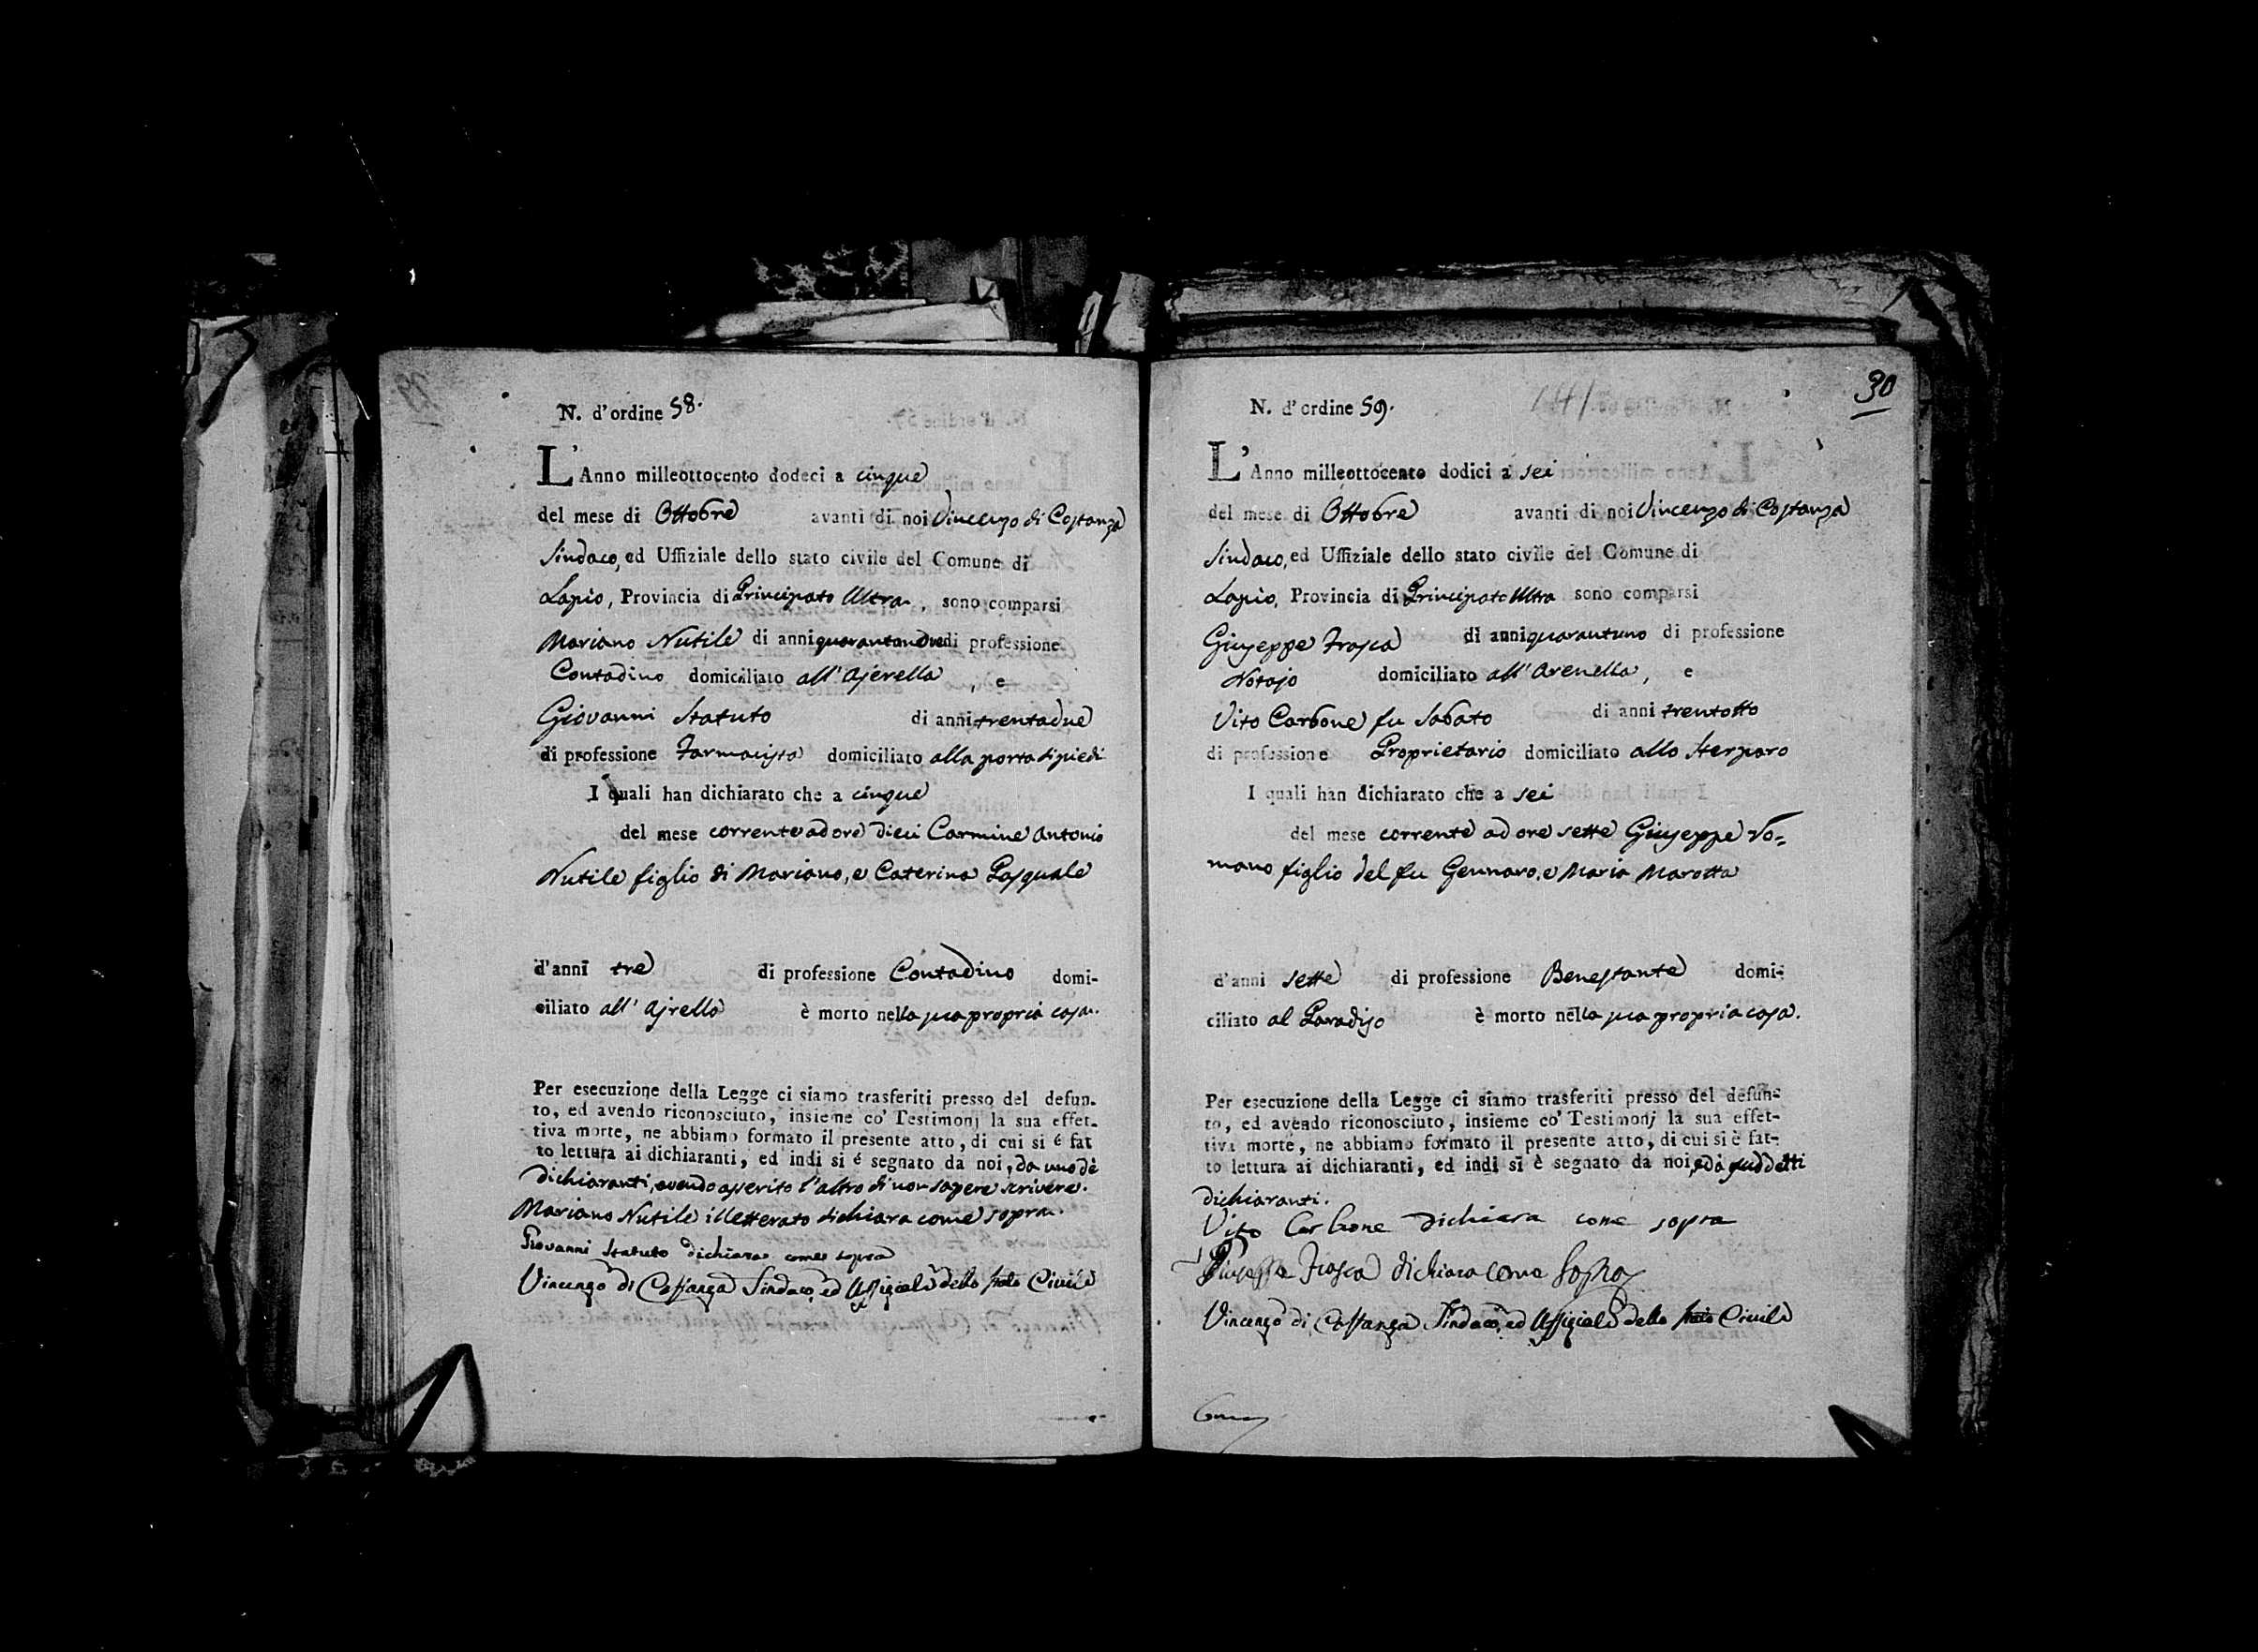 N. d'ordine 58.
L'Anno milleottocento dodeci a cinque
del mese di Ottobre avanti di noi Vincenzo di Costanza
Sindaco, ed Uffiziale dello stato civile del Comune di
Lapio, Provincia di Principato Ultra, sono comparsi
Mariano Nutile di anni quarantadue di professione
Contadino domiciliato all'Ajerella, e
Giovanni Statuto di anni trentadue
di professione Farmacista domiciliato alla porta di piedi
I quali han dichiarato che a cinque
del mese corrente ad ore dieci Carmine Antonio
Nutile figlio di Mariano, e Caterina Pasquale
d'anni tre di professione Contadino domi-
ciliato all' Ajrella è morto nella sua propria casa.
Per esecuzione della Legge ci siamo trasferiti presso del defun-
to, ed avendo riconosciuto, insieme co' Testimonj la sua effet-
tiva morte, ne abbiamo formato il presente atto, di cui si é fat
to lettura ai dichiaranti, ed indi si é segnato da noi, da uno dè
dichiaranti, avendo asserito l'altro di non sapere scrivere.
Mariano Nutile illetterato dichiara come sopra.
Giovanni Statuto dichiara come sopra
Vincenzo di Costanza Sindaco, ed Uffiziale dello stato Civile
30
N. d'ordine 59.
141
L'Anno milleottocento dodici a sei
del mese di Ottobre avanti di noi Vincenzo di Costanza
Sindaco, ed Uffiziale dello stato civile del Comune di
Lapio, Provincia di Principato Ultra sono comparsi
Giuseppe Frasca di anni quarantuno di professione
Notajo domiciliato all'Arenella, e
Vito Carbone fu Sabato di anni trentotto
di professione Proprietario domiciliato allo Sterparo
I quali han dichiarato che a sei
del mese corrente ad ore sette Giuseppe Ro=
mano figlio del fu Gennaro, e Maria Marotta
d'anni sette di professione Benestante domi-
ciliato al Paradiso è morto nella sua propria casa.
Per esecuzione della Legge ci siamo trasferiti presso del defun-
to, ed avendo riconosciuto, insieme co' Testimonj la sua effet-
tiva morte, ne abbiamo formato il presente atto, di cui si è fat-
to lettura ai dichiaranti, ed indi si è segnato da noi, e dà suddetti
dichiaranti.
Vito Carbone dichiara come sopra
Giuseppe Frasca dichiara come Sopra
Vincenzo di Costanza Sindaco, ed Uffiziale dello stato Civile